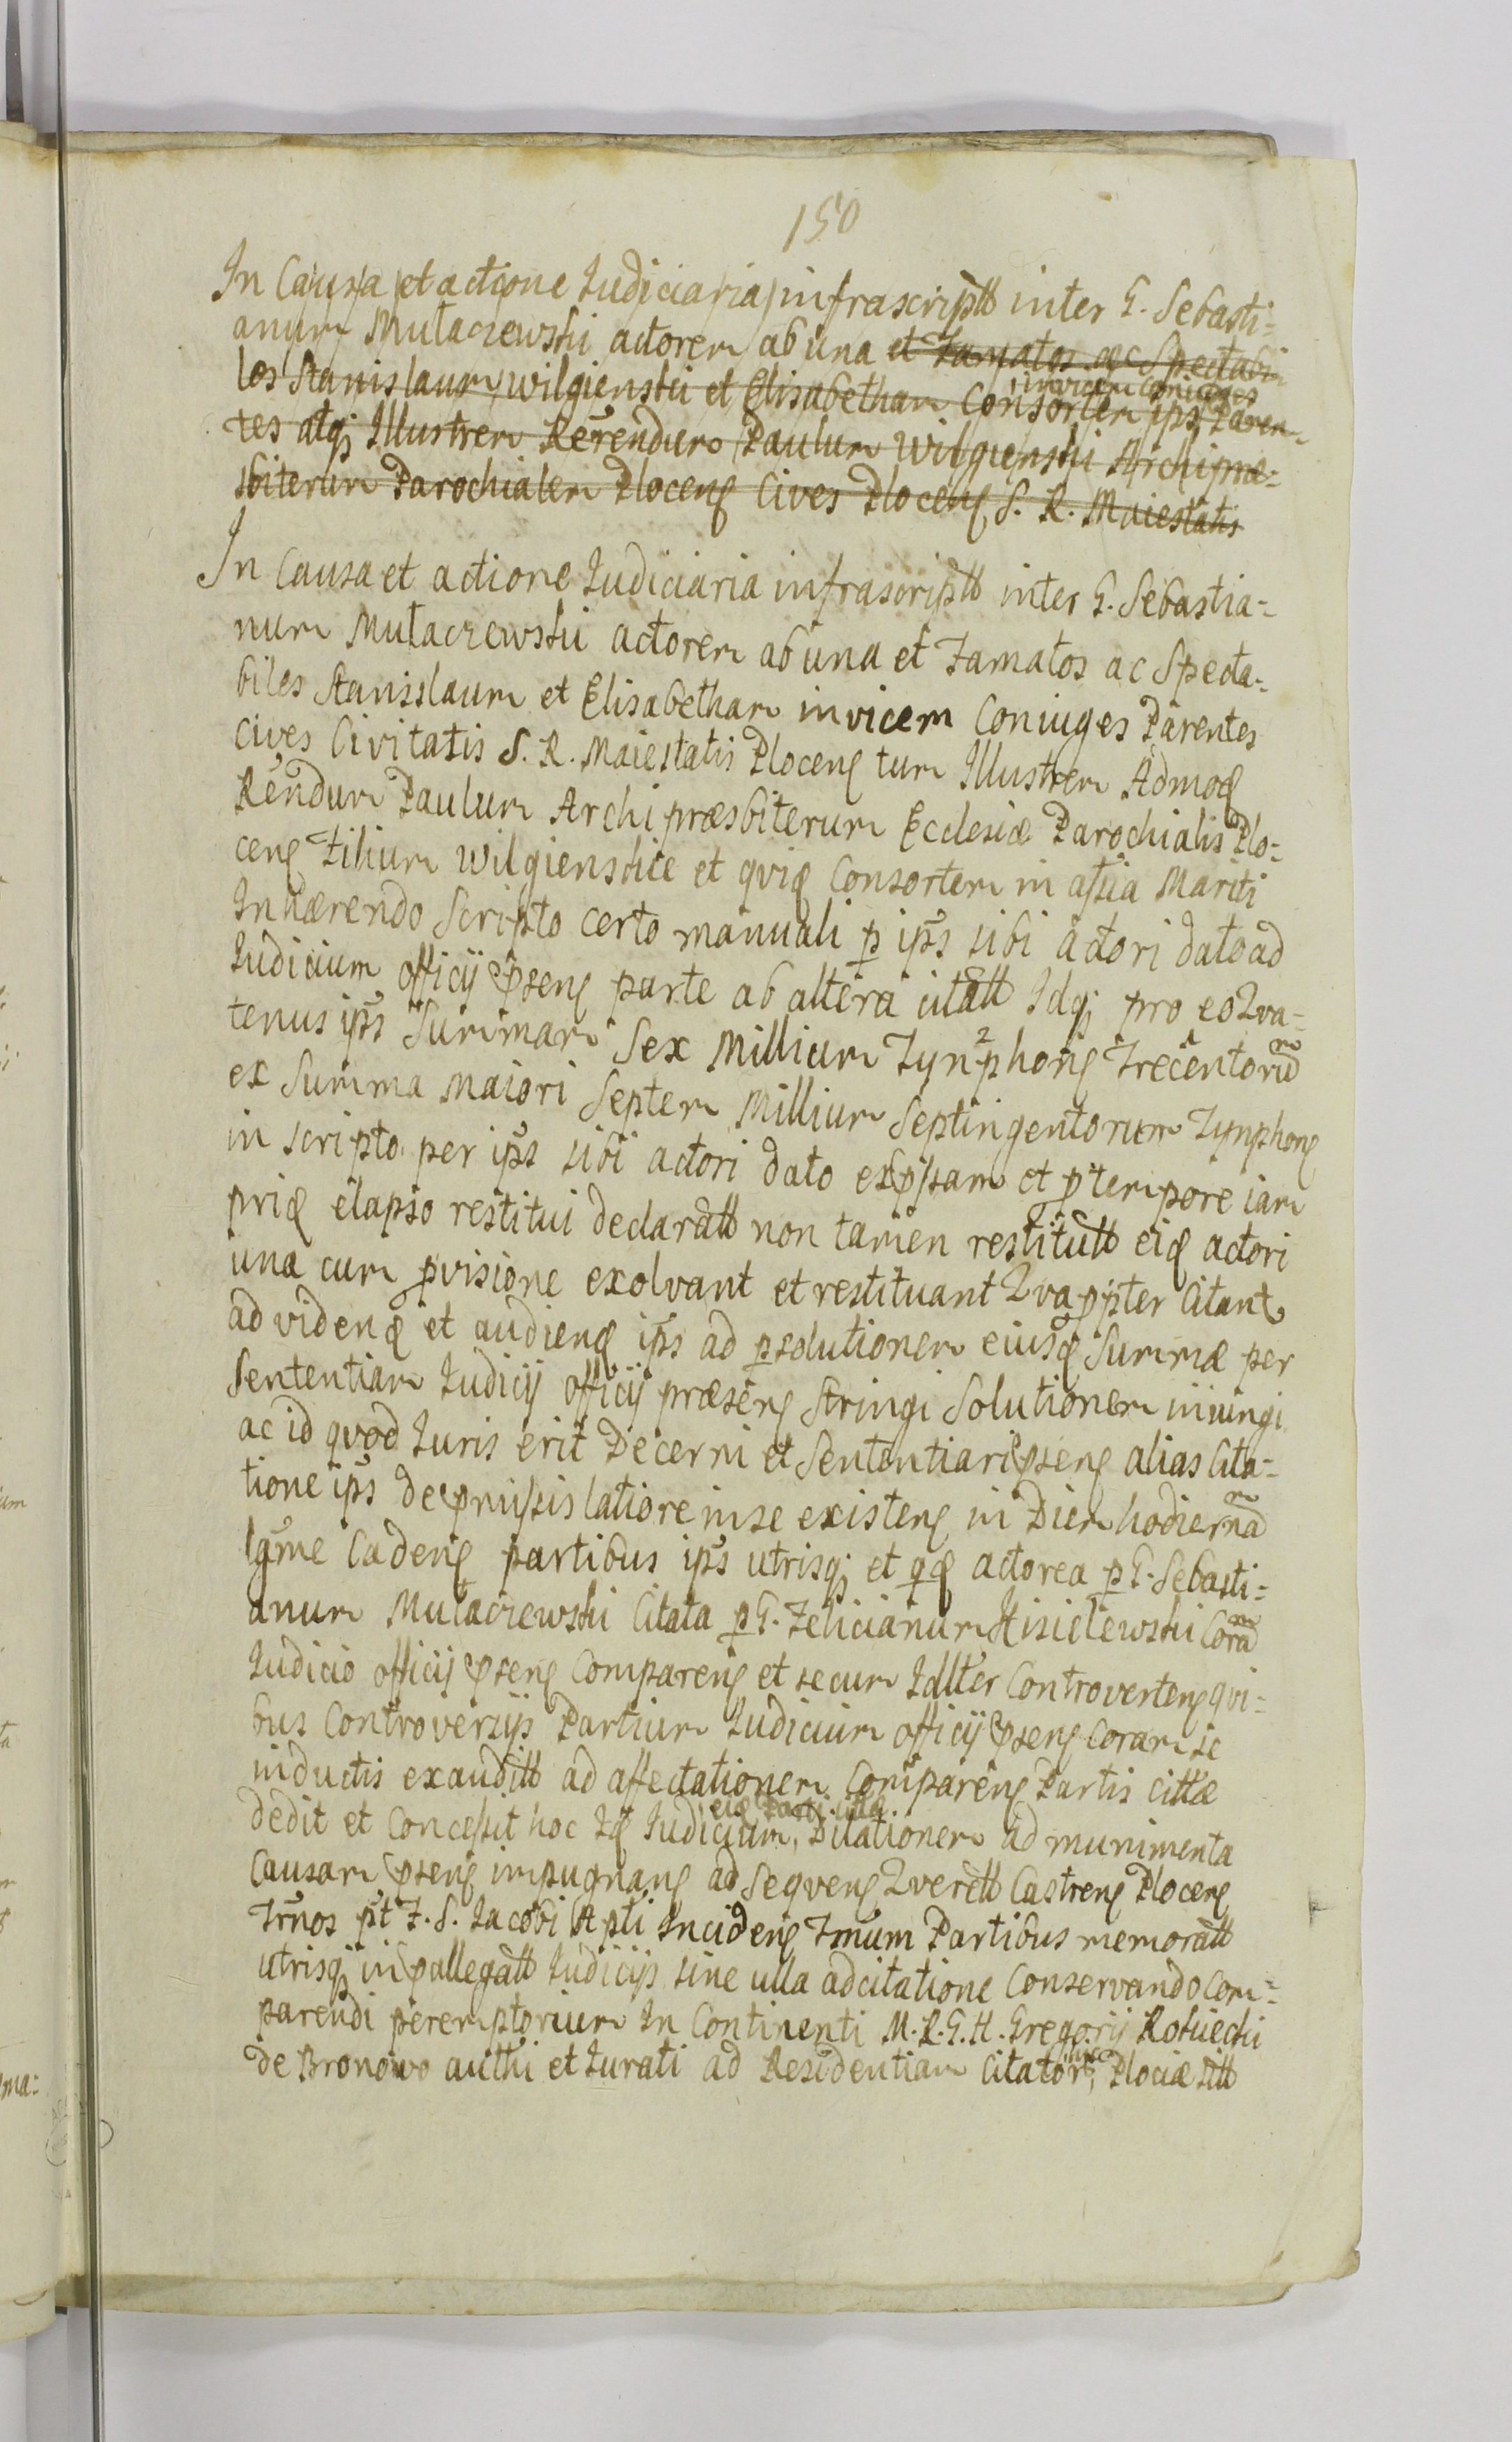 150
In Causa et actione Iudiciaria infrascriptt inter G. Sebasti=
anum Mułaczewski actorem ab una et Famatos ac Spectabi
les Stanislaum Wilgienski et Elisabetham Consortem ips Paren=
invicem Coniuges
tes atq Illustrem Rerendum Paulum Wilgienski Archipræ=
sbiterum Parochialem Plocens Cives Plocens S. R. Maiestatis
In Causa et actione Iudiciaria infrascriptt inter G. Sebastia=
num Mułaczewski actorem ab una et Famatos ac Specta=
biles Stanislaum et Elisabetham invicem Coniuges Parentes
Cives Civitatis S. R. Maiestatis Plocens tum Illustrem Admod
Rendum Paulum Archipræsbiterum Ecclesiæ Parochialis Plo=
cens Filium Wilgienskie et quid Consortem in astia Mariti
Inhærendo Scripto certo manuali p ips sibi actori dato ad
Iudicium officÿ psens parte ab altera citatt Idq pro eo Qva=
tenus ips Summam Sex Millium Tynphons Trecentorum
ex Summa maiori Septem Millium Septingentorum Tynphons
in scripto per ips sibi actori dato expssam et p tempore iam
prid elapso restitui declaratt non tamen restitutt eid actori
una cum pvisione exolvant et restituant Qvappter Citant
ad vidend et audiend ips ad psolutionem eiusd Summæ per
Sententiam Iudicÿ officÿ præsens Stringi Solutionem iniungi
ac id qvod Iuris erit Decerni et Sententiari psens alias Cita=
tione ips de pmissis latiore in se existens in Diem hodiernam
lgme Cadens partibus ips utrisq et qd actorea p G. Sebasti=
anum Mułaczewski Citata p G. Felicianum Kisielewski Coram
Iudicio officÿ psens Comparens et secum Idllter Controvertens qvi=
bus Controversÿs Partium Iudicium officÿ psens Coram se
inductis exauditt ad affectationem Comparens Partis cittæ
eid Parti cittæ
dedit et Concessit hoc Id Iudicium, Dilationem ad munimenta
Causam psens impugnans ad Seqvens Qverett Castrens Plocens
Trnos pt F. S. Iacobi Apti Incidens Tmum Partibus memoratt
utrisq in pallegatt Iudicÿs sine ulla adcitatione Conservando Com=
parendi peremptorium In Continenti M. R. G. H. Gregorÿ Rościecki
de Bronowo authi et Iurati ad Residentiam Citator, Plociæ sitt